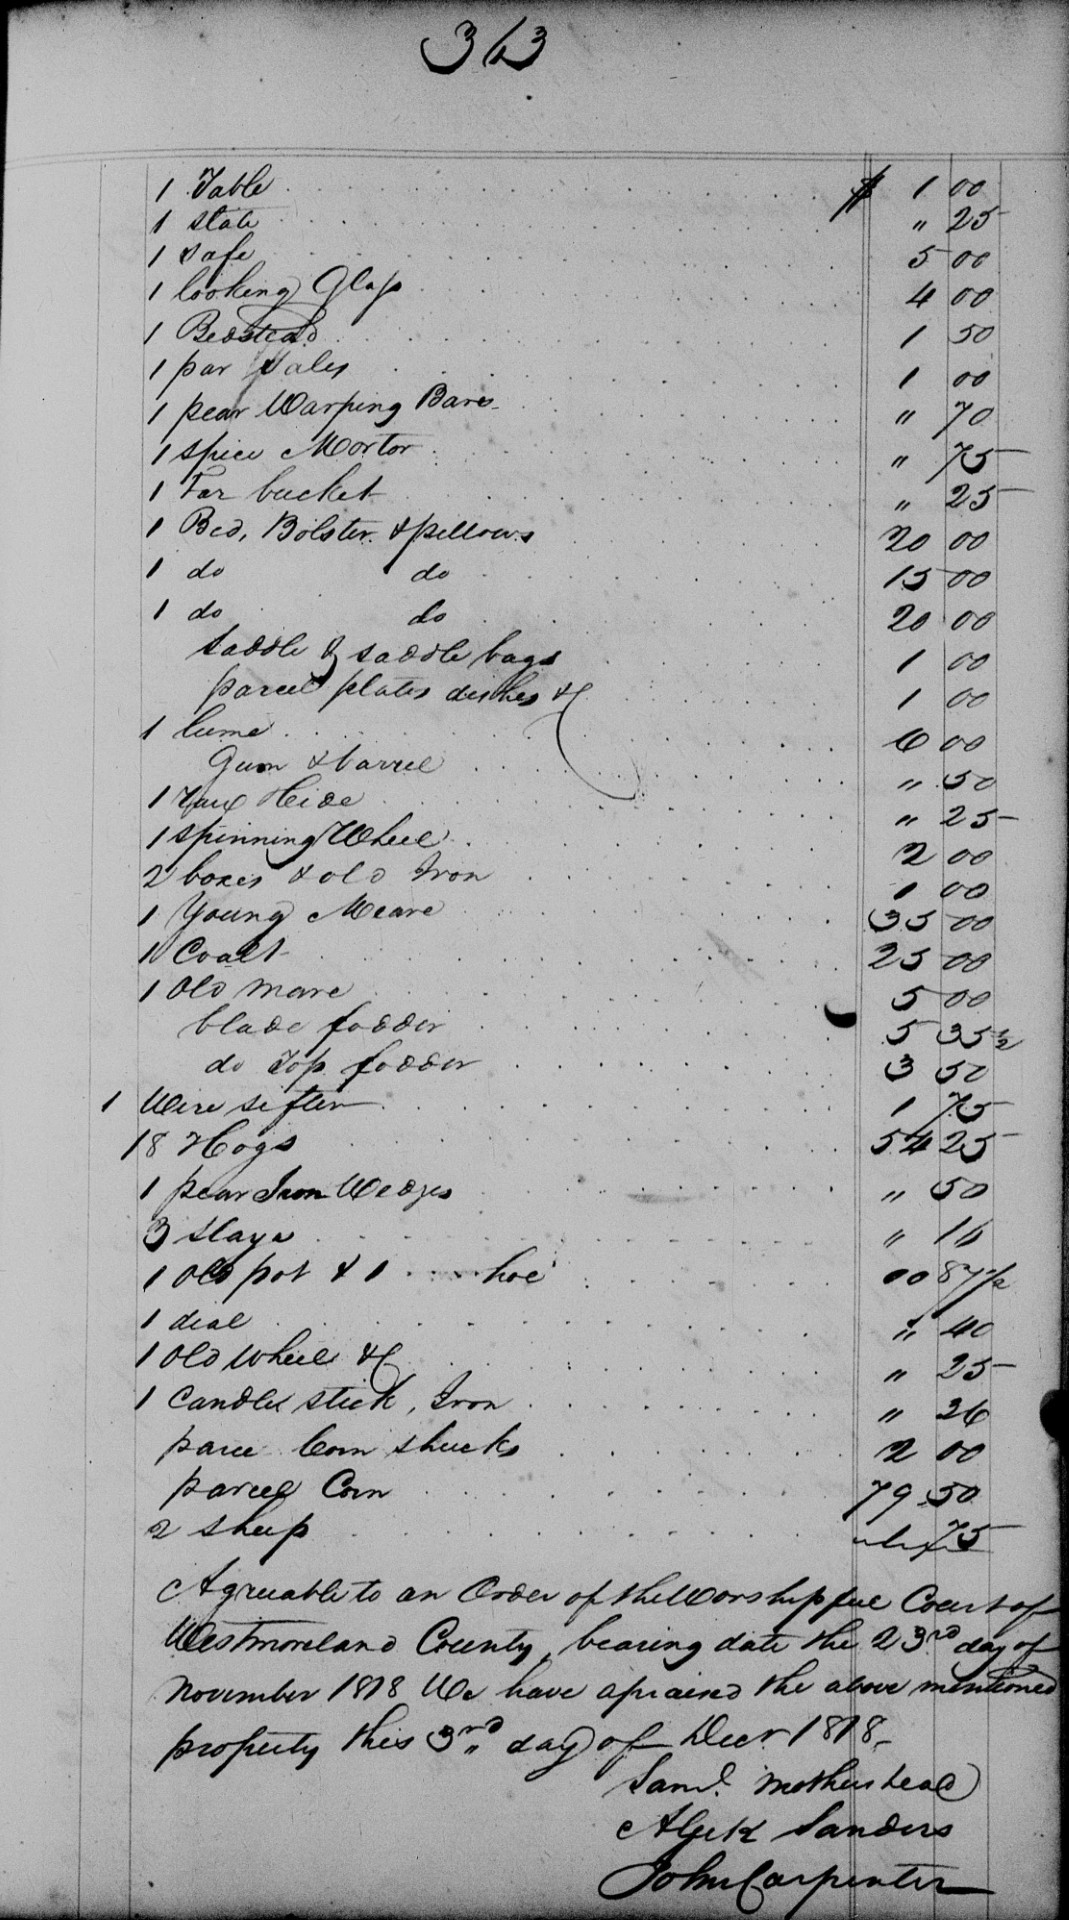 313
1 Table $ 1 00
1 slate " 25
1 safe 5 00
1 looking Glass 4 00
1 Bedstead 1 50
1 par sales 1 00
1 pear Warping Bars " 70
1 spice Mortor " 75
1 Tar bucket " 25
1 Bed, Bolster & pillows 20 00
1 do do 15 00
1 do do 20 00
saddle & saddle bags 1 00
parcel plates dishes &C 1 00
1 lume 6 00
Gum & barrel " 50
1 Raw Hide " 25
1 spinning Wheel 2 00
2 boxes & old Iron 1 00
1 Young Meare 35 00
1 Coalt 25 00
1 Old mare 5 00
blade fodder 5 35 1/2
do Top fodder 3 50
1 Wire sifter 1 75
18 Hogs 54 25
1 pear Iron Wedges " 50
3 slays " 16
1 Old pot & 1 .... hoe 00 87 1/2
1 dial " 40
1 Old Wheel &C " 25
1 candle stick, Iron " 26
parce Corn shucks 2 00
parcel Corn 79 50
2 sheep 75
Agreuable to an Order of the Worshipful Court of
Westmoreland County, bearing date the 23rd day of
November 1818 We have apraised the above mentioned
property this 3rd day of Decr 1818,
Saml. Mothershead
Alex Sanders
John Carpenter